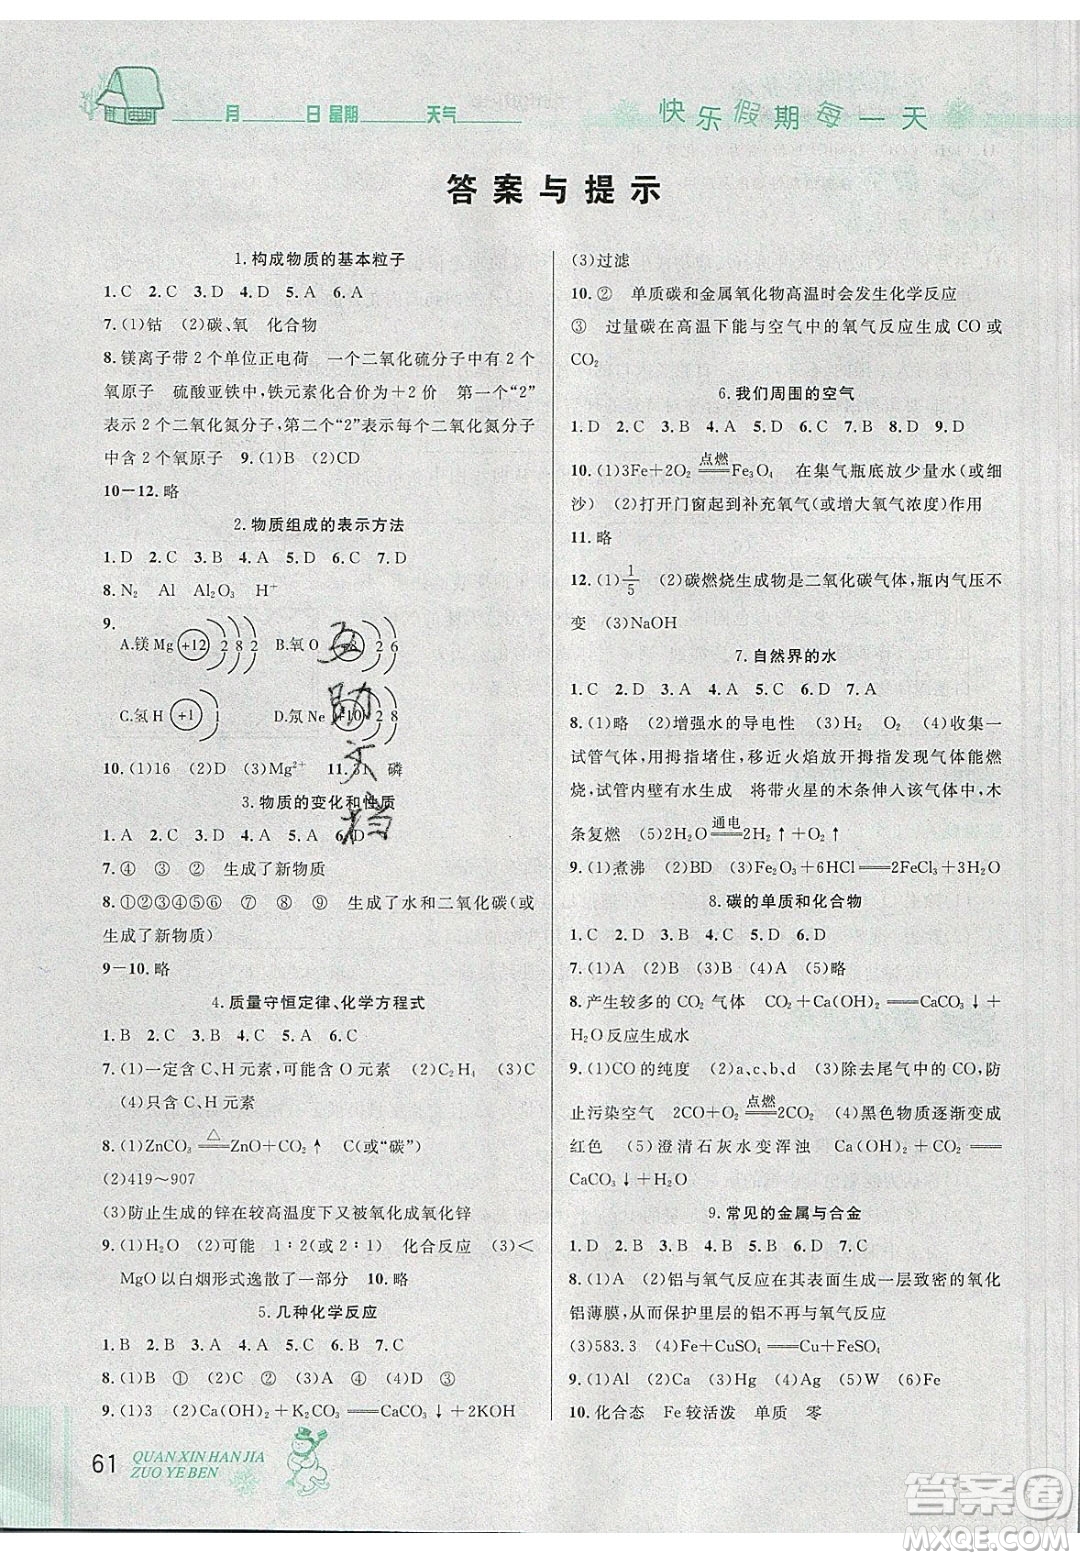 月 日 星期 天气
快乐假期每一天
答案与提示
1.构成物质的基本粒子
1.C 2.C 3.D 4.D 5.A 6.A
7.(1)钴 (2)碳、氧 化合物
8.镁离子带2个单位正电荷 一个二氧化硫分子中有2个
氧原子 硫酸亚铁中,铁元素化合价为+2价 第一个“2”
表示2个二氧化氮分子,第二个“2”表示每个二氧化氮分子
中含2个氧原子 9.(1)B (2)CD
10-12.略
2.物质组成的表示方法
1.D 2.C 3.B 4.A 5.D 6.C 7.D
8.N₂ Al Al₂O₃ H⁺
9.
A.镁 Mg +12 2 8 2 B.氧 O +8 2 6
C.氢 H +1 1 D.氖 Ne +10 2 8
10.(1)16 (2)D (3)Mg²⁺ 11.31 磷
3.物质的变化和性质
1.A 2.D 3.D 4.A 5.A 6.D
7.④ ③ ② 生成了新物质
8.①②③④⑤⑥ ⑦ ⑧ ⑨ 生成了水和二氧化碳(或
生成了新物质)
9-10.略
4.质量守恒定律、化学方程式
1.B 2.C 3.B 4.C 5.A 6.C
7.(1)一定含C、H元素,可能含O元素 (2)C₂H₄ (3)C
(4)只含C、H元素
8.(1)ZnCO₃ △ ZnO+CO₂↑ C(或“碳”)
(2)419~907
(3)防止生成的锌在较高温度下又被氧化成氧化锌
9.(1)H₂O (2)可能 1∶2(或2∶1) 化合反应 (3)<
MgO以白烟形式逸散了一部分 10.略
5.几种化学反应
1.B 2.B 3.A 4.C 5.C 6.A 7.C
8.(1)B ① (2)A ② (3)C ④ (4)D ③
9.(1)3 (2)Ca(OH)₂+K₂CO₃══CaCO₃↓+2KOH
(3)过滤
10.② 单质碳和金属氧化物高温时会发生化学反应
③ 过量碳在高温下能与空气中的氧气反应生成CO或
CO₂
6.我们周围的空气
1.D 2.C 3.B 4.A 5.D 6.D 7.B 8.D 9.D
10.(1)3Fe+2O₂ 点燃 Fe₃O₄ 在集气瓶底放少量水(或细
沙) (2)打开门窗起到补充氧气(或增大氧气浓度)作用
11.略
12.(1)1/5 (2)碳燃烧生成物是二氧化碳气体,瓶内气压不
变 (3)NaOH
7.自然界的水
1.C 2.D 3.A 4.A 5.D 6.D 7.A
8.(1)略 (2)增强水的导电性 (3)H₂ O₂ (4)收集一
试管气体,用拇指堵住,移近火焰放开拇指观察气体能燃
烧,试管内壁有水生成 将带火星的木条伸入该气体中,木
条复燃 (5)2H₂O 通电 2H₂↑+O₂↑
9.(1)煮沸 (2)BD (3)Fe₂O₃+6HCl══2FeCl₃+3H₂O
8.碳的单质和化合物
1.C 2.D 3.D 4.C 5.D 6.D
7.(1)A (2)C (3)B (4)A (5)略
8.产生较多的CO₂气体 CO₂+Ca(OH)₂══CaCO₃↓+
H₂O反应生成水
9.(1)CO的纯度 (2)a、c、b、d (3)除去尾气中的CO,防
止污染空气 2CO+O₂ 点燃 2CO₂ (4)黑色物质逐渐变成
红色 (5)澄清石灰水变浑浊 Ca(OH)₂+CO₂══
CaCO₃↓+H₂O
9.常见的金属与合金
1.D 2.C 3.B 4.D 5.B 6.D 7.C
8.(1)A (2)铝与氧气反应在其表面生成一层致密的氧化
铝薄膜,从而保护里层的铝不再与氧气反应
(3)583.3 (4)Fe+CuSO₄══FeSO₄+Cu
9.(1)Al (2)Ca (3)Hg (4)Ag (5)W (6)Fe
10.化合态 Fe较活泼 单质 零
互助文档
61 QUAN XIN HAN JIA
ZUO YE BEN
答案圈
MXQE.COM